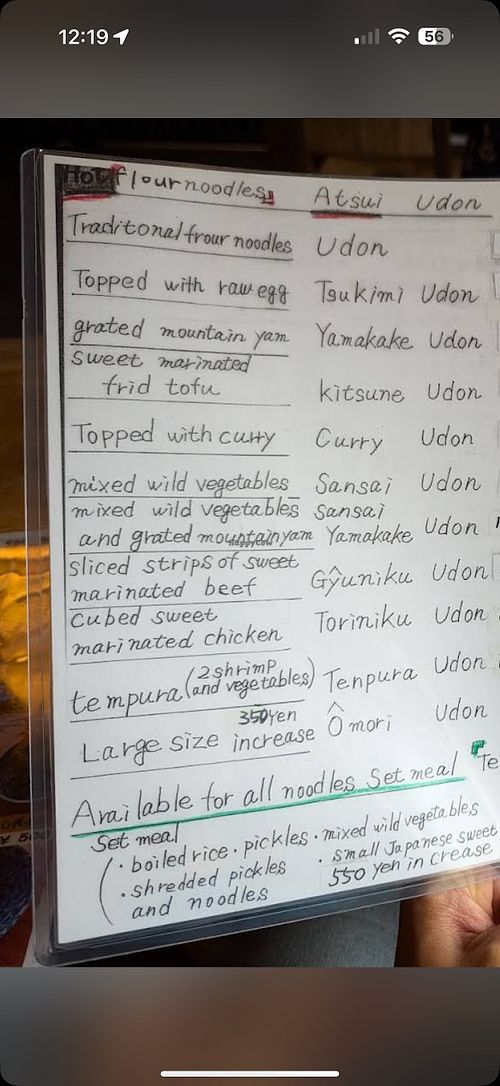 12:19
56
Hot flour noodles Atsui Udon
Traditonal frour noodles Udon
Topped with raw egg Tsukimi Udon
grated mountain yam Yamakake Udon
sweet marinated
frid tofu kitsune Udon
Topped with curry Curry Udon
mixed wild vegetables Sansai Udon
mixed wild vegetables Sansai
and grated mountain yam Yamakake Udon
HappyCow
sliced strips of sweet
marinated beef Gyûniku Udon
Cubed sweet
marinated chicken Toriniku Udon
tempura (2 shrimp and vegetables) Tenpura Udon
350yen
Large size increase Ômori Udon
Available for all noodles Set meal 「Te
Set meal
( · boiled rice · pickles · mixed wild vegetables
· shredded pickles · small Japanese sweet
and noodles 550 yen in crease